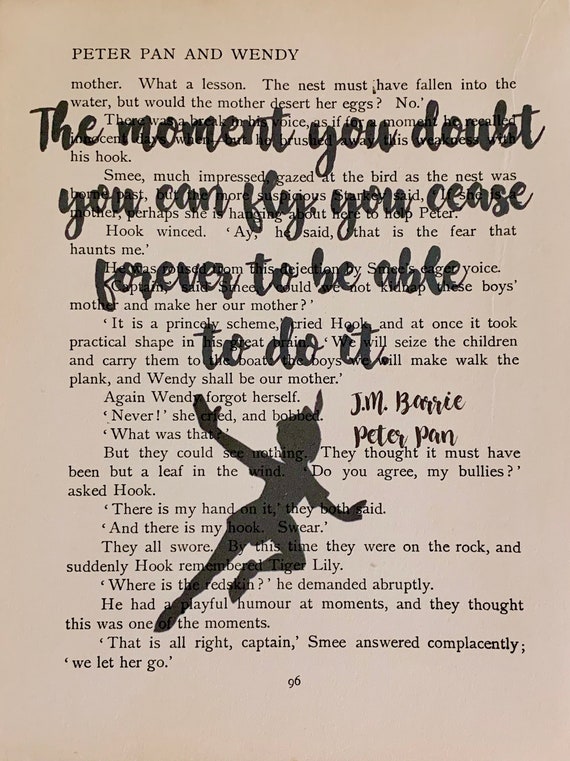 PETER PAN AND WENDY
mother. What a lesson. The nest must have fallen into the
water, but would the mother desert her eggs? No.'
There was a break in his voice, as if for a moment he recalled
The moment you doubt
innocent days when—but he brushed away this weakness with
his hook.
Smee, much impressed, gazed at the bird as the nest was
borne past, but the more suspicious Starkey said, 'If she is a
you can fly, you cease
mother, perhaps she is hanging about here to help Peter.'
Hook winced. 'Ay,' he said, 'that is the fear that
haunts me.'
He was roused from this dejection by Smee's eager voice.
forever to be able
'Captain,' said Smee, 'could we not kidnap these boys'
mother and make her our mother?'
'It is a princely scheme,' cried Hook, and at once it took
practical shape in his great brain. 'We will seize the children
to do it.
and carry them to the boat: the boys we will make walk the
plank, and Wendy shall be our mother.'
Again Wendy forgot herself.
J.M. Barrie
'Never!' she cried, and bobbed.
'What was that?'
Peter Pan
But they could see nothing. They thought it must have
been but a leaf in the wind. 'Do you agree, my bullies?'
asked Hook.
'There is my hand on it,' they both said.
'And there is my hook. Swear.'
They all swore. By this time they were on the rock, and
suddenly Hook remembered Tiger Lily.
'Where is the redskin?' he demanded abruptly.
He had a playful humour at moments, and they thought
this was one of the moments.
'That is all right, captain,' Smee answered complacently;
'we let her go.'
96